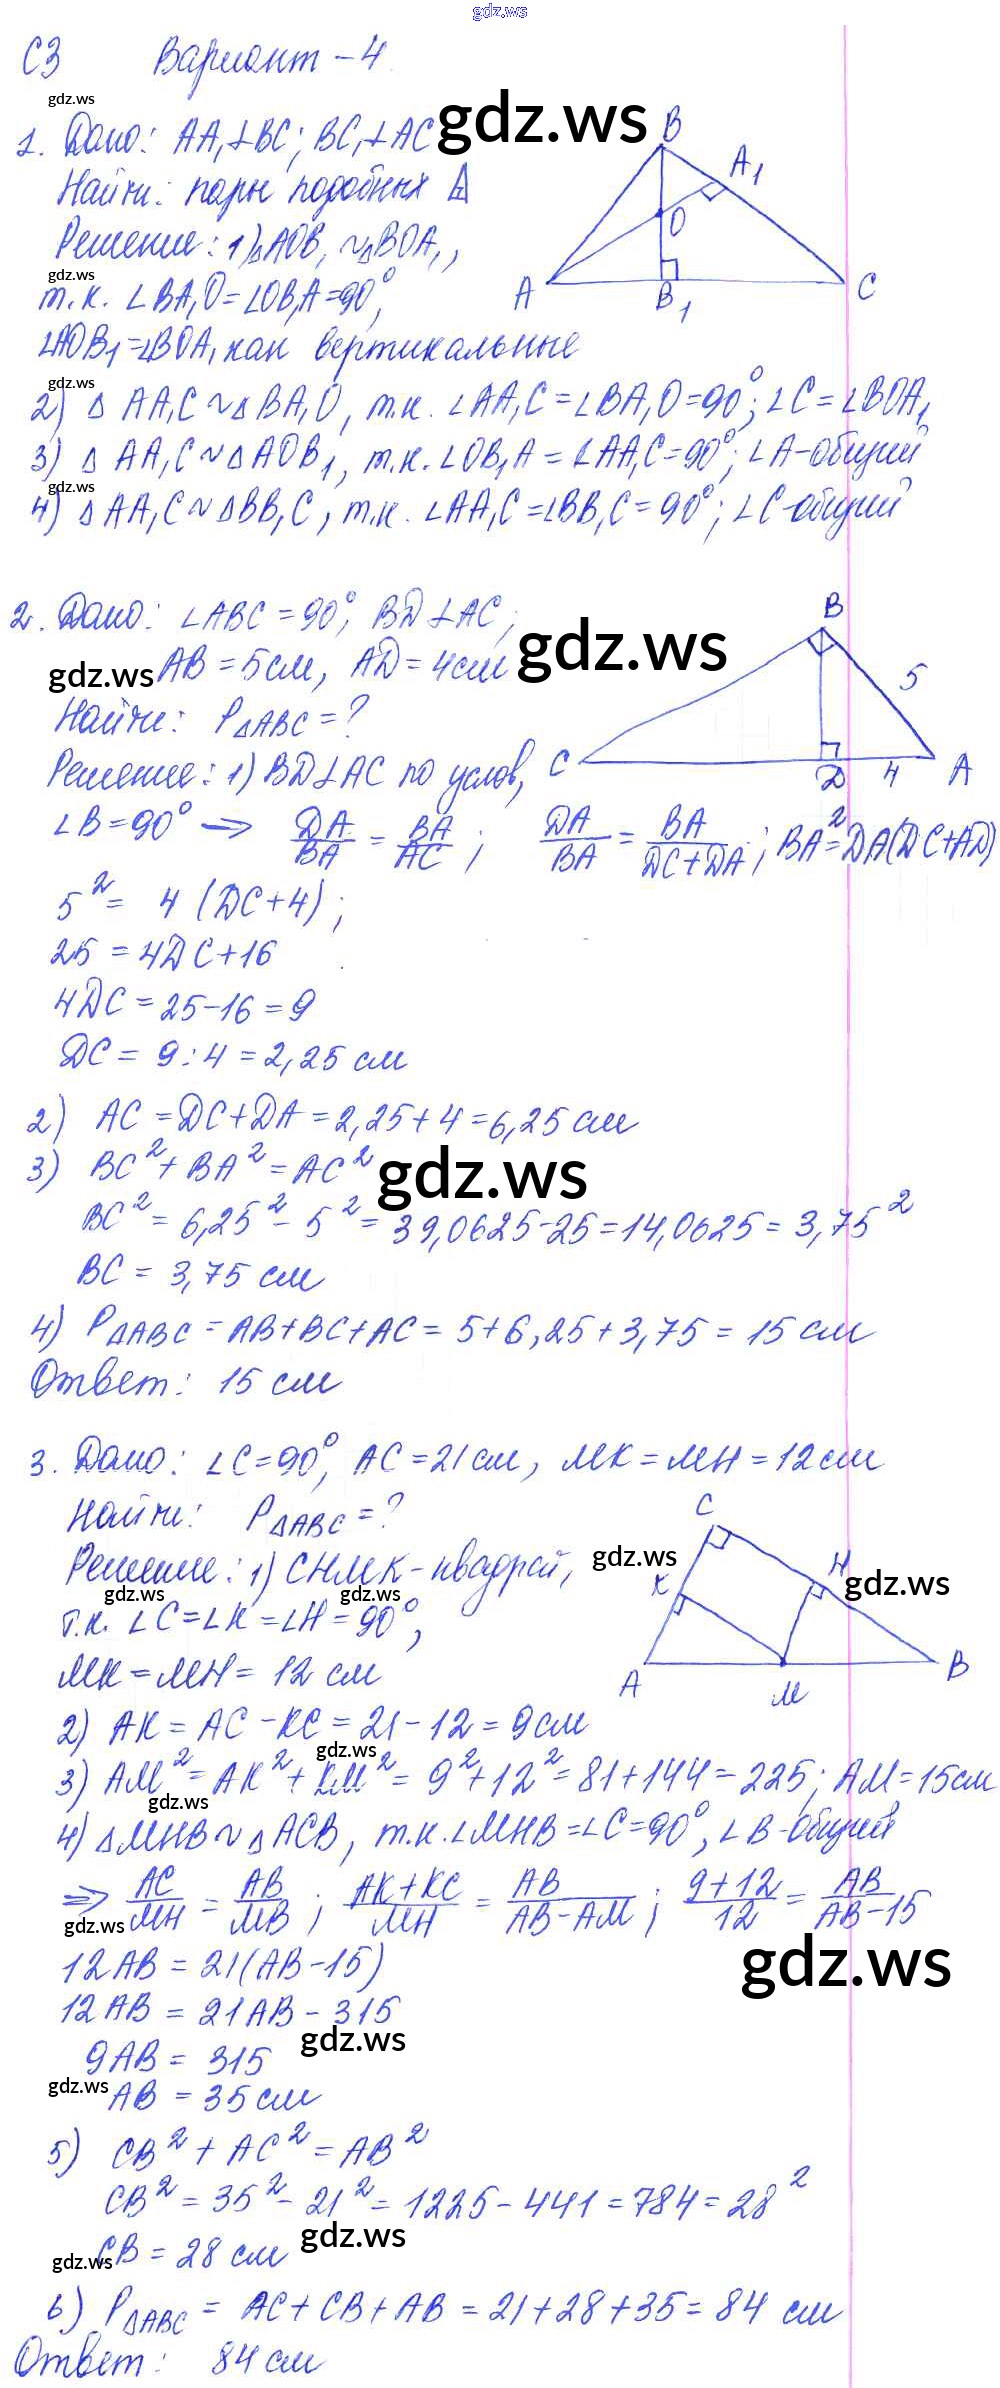 gdz.ws
С3 Вариант – 4
gdz.ws
1. Дано: AA₁⊥BC; BC₁⊥AC gdz.ws
Найти: пары подобных Δ
Решение: 1) ΔAOB₁ ~ ΔBOA₁,
gdz.ws
т.к. ∠BA₁O = ∠OB₁A = 90°,
∠AOB₁ = ∠BOA₁ как вертикальные
B
A₁
O
A
B₁
C
gdz.ws
2) Δ AA₁C ~ Δ BA₁O, т.к. ∠AA₁C = ∠BA₁O = 90°; ∠C = ∠BOA₁
3) Δ AA₁C ~ Δ AOB₁, т.к. ∠OB₁A = ∠AA₁C = 90°; ∠A - общий
gdz.ws
4) Δ AA₁C ~ ΔBB₁C, т.к. ∠AA₁C = ∠BB₁C = 90°; ∠C - общий
2. Дано: ∠ABC = 90°, BD⊥AC;
gdz.ws AB = 5 см, AD = 4 см gdz.ws
Найти: P ΔABC = ?
Решение: 1) BD⊥AC по услов,
B
5
C
D
4
A
∠B = 90° => DA/BA = BA/AC; DA/BA = BA/(DC + DA); BA² = DA(DC + AD)
5² = 4 (DC + 4);
25 = 4DC + 16
4DC = 25 – 16 = 9
DC = 9 : 4 = 2,25 см
2) AC = DC + DA = 2,25 + 4 = 6,25 см
3) BC² + BA² = AC² gdz.ws
BC² = 6,25² – 5² = 39,0625 – 25 = 14,0625 = 3,75²
BC = 3,75 см
4) P ΔABC = AB + BC + AC = 5 + 6,25 + 3,75 = 15 см
Ответ: 15 см
3. Дано: ∠C = 90°, AC = 21 см, MK = MH = 12 см
Найти: P ΔABC = ?
Решение: 1) CHMK - квадрат,
gdz.ws gdz.ws
т.к. ∠C = ∠K = ∠H = 90°,
MK = MH = 12 см
C
gdz.ws
H
gdz.ws
K
A
M
B
2) AK = AC – KC = 21 – 12 = 9 см
gdz.ws
3) AM² = AK² + KM² = 9² + 12² = 81 + 144 = 225; AM = 15 см
gdz.ws
4) ΔMHB ~ ΔACB, т.к. ∠MHB = ∠C = 90°, ∠B - общий
=> AC/MH = AB/MB; (AK + KC)/MH = AB/(AB – AM); (9 + 12)/12 = AB/(AB – 15)
gdz.ws
12AB = 21(AB – 15) gdz.ws
12AB = 21AB – 315
gdz.ws
9AB = 315
gdz.ws
AB = 35 см
5) CB² + AC² = AB²
CB² = 35² – 21² = 1225 – 441 = 784 = 28²
gdz.ws
gdz.ws CB = 28 см
6) P ΔABC = AC + CB + AB = 21 + 28 + 35 = 84 см
Ответ: 84 см